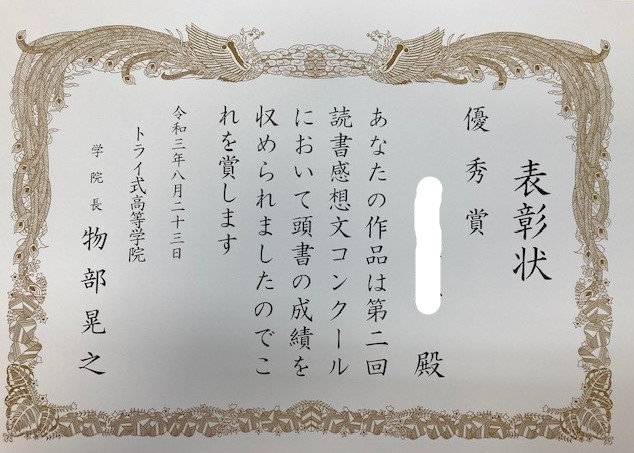 表彰状
優秀賞
殿
あなたの作品は第二回
読書感想文コンクール
において頭書の成績を
収められましたのでこ
れを賞します
令和三年八月二十三日
トライ式高等学院
学院長 物部晃之